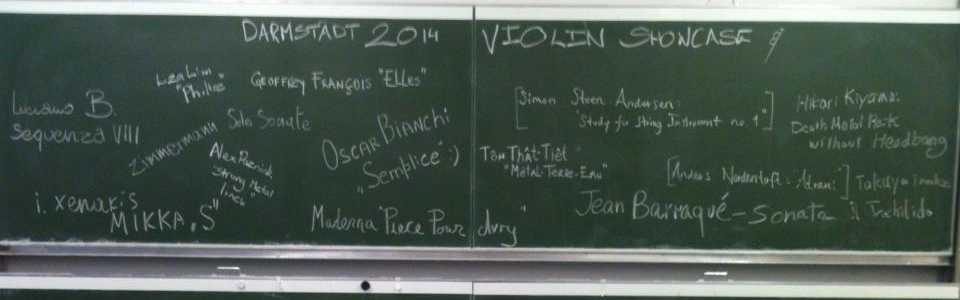 DARMSTADT 2014 VIOLIN SHOWCASE
Liza Lim
"Philtre"
GEOFFREY FRANÇOIS "ELLES"
Luciano B.
Sequenza VIII
ZIMMERMANN Solo Sonate
OSCAR BIANCHI
"Semplice" :)
String Metal
Lines"
i. xenakis
MIKKA "S"
Maderna "Piece Pour Ivry"
[Simon Steen-Andersen:
"Study for String Instrument no. 1"]
Hikari Kiyama:
Death Metal Rock
without Headbang
TÔN-THẤT-TIẾT
"METAL-TERRE-EAU"
[Anders Nordentoft: "Adnan:"]
Jean Barraqué - Sonata
Takuya Imahori
Il Trochilido